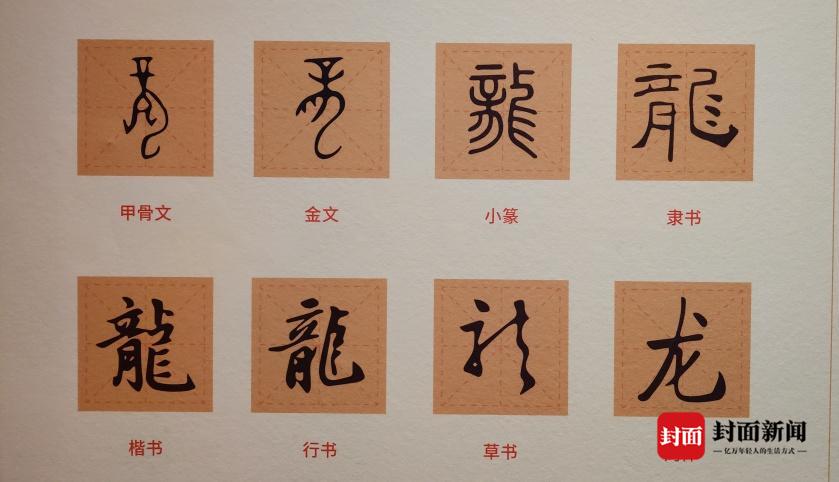 龍 龍 龍 龍
甲骨文 金文 小篆 隶书
龍 龍 龍 龙
楷书 行书 草书
封面 封面新闻
亿万年轻人的生活方式